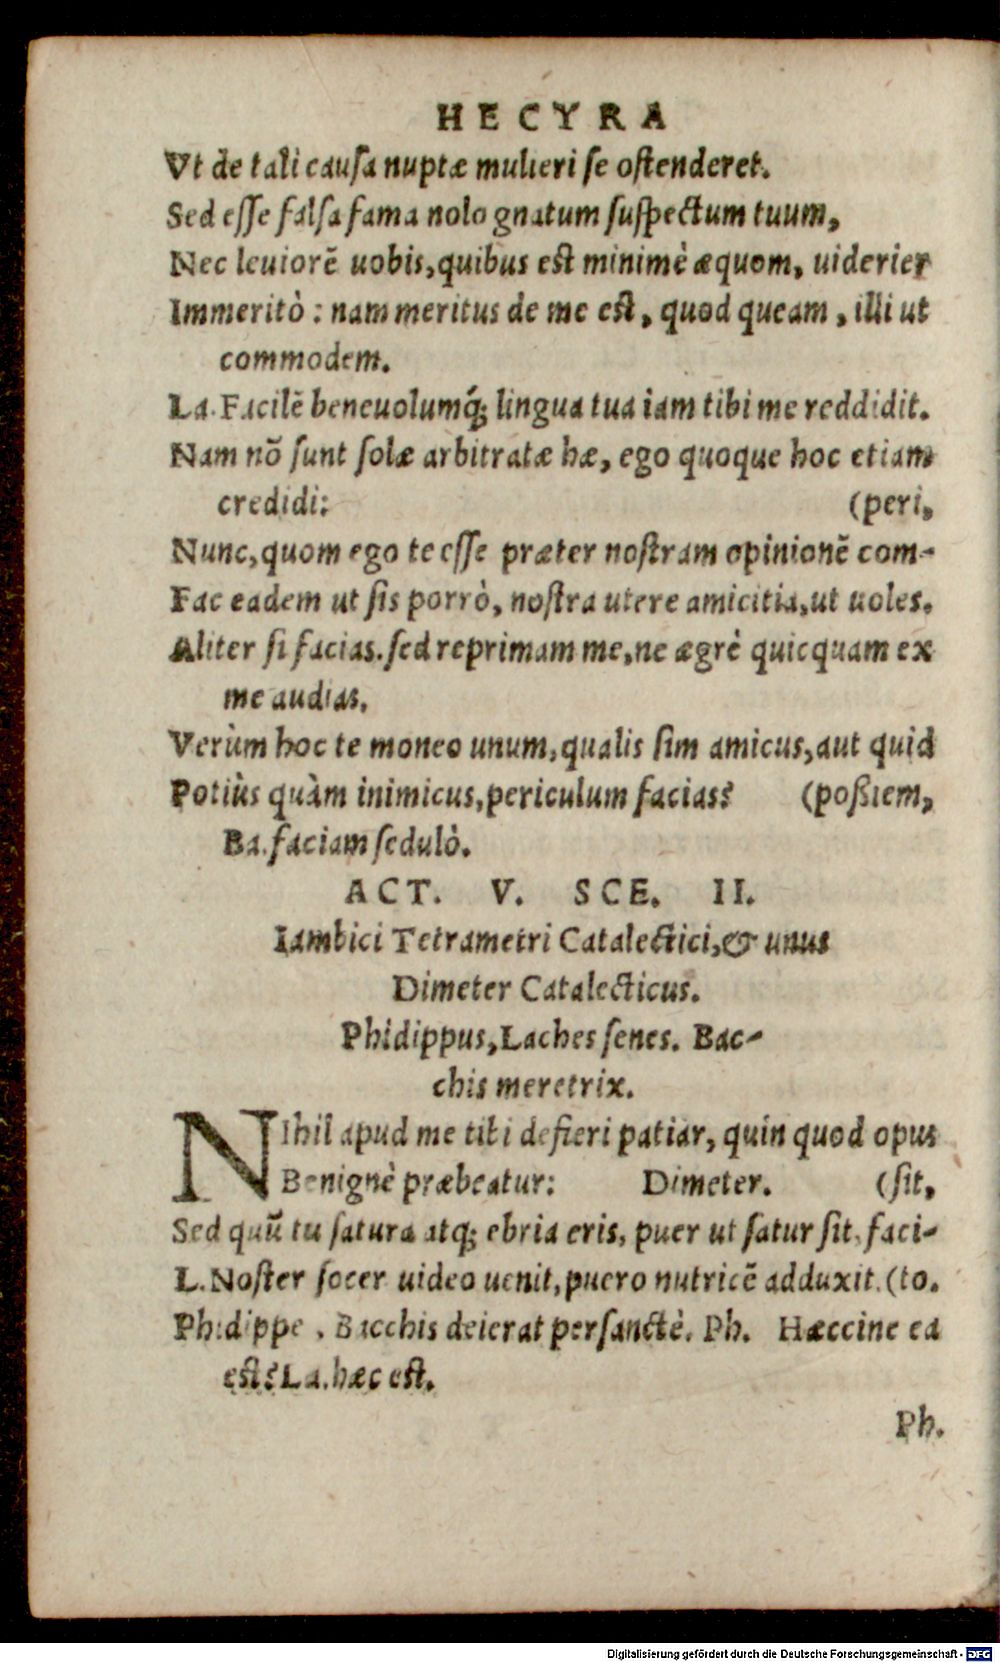 HECYRA
Vt de tali cauſa nuptæ mulieri ſe oſtenderet.
Sed eſſe falſa fama nolo gnatum ſuſpectum tuum,
Nec leuiorẽ uobis, quibus eſt minimè æquom, uiderier
Immeritò: nam meritus de me eſt, quod queam, illi ut
commodem.
La. Facilẽ beneuolumq́; lingua tua iam tibi me reddidit.
Nam nõ ſunt ſolæ arbitratæ hæ, ego quoque hoc etiam
credidi: (peri,
Nunc, quom ego te eſſe præter noſtram opinionẽ com-
Fac eadem ut ſis porrò, noſtra utere amicitia, ut uoles.
Aliter ſi facias. ſed reprimam me, ne ægrè quicquam ex
me audias.
Verùm hoc te moneo unum, qualis ſim amicus, aut quid
Potiùs quàm inimicus, periculum facias? (poßiem,
Ba. faciam ſedulò.
ACT. V. SCE. II.
Iambici Tetrametri Catalectici, & unus
Dimeter Catalecticus.
Phidippus, Laches ſenes. Bac-
chis meretrix.
NIhil apud me tibi defieri patiar, quin quod opus
Benignè præbeatur: Dimeter. (ſit,
Sed quũ tu ſatura atq; ebria eris, puer ut ſatur ſit, faci-
L. Noſter ſocer uideo uenit, puero nutricẽ adduxit. (to.
Phidippe, Bacchis deierat perſanctè. Ph. Hæccine ea
eſt? La. hæc eſt.
Ph.
Digitalisierung gefördert durch die Deutsche Forschungsgemeinschaft - DFG